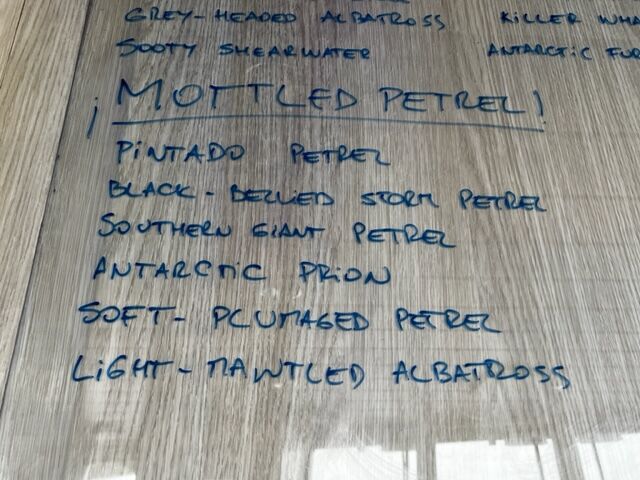 GREY-HEADED ALBATROSS
SOOTY SHEARWATER
¡MOTTLED PETREL!
PINTADO PETREL
BLACK-BELLIED STORM PETREL
SOUTHERN GIANT PETREL
ANTARCTIC PRION
SOFT-PLUMAGED PETREL
LIGHT-MANTLED ALBATROSS
KILLER WHA
ANTARCTIC FUR